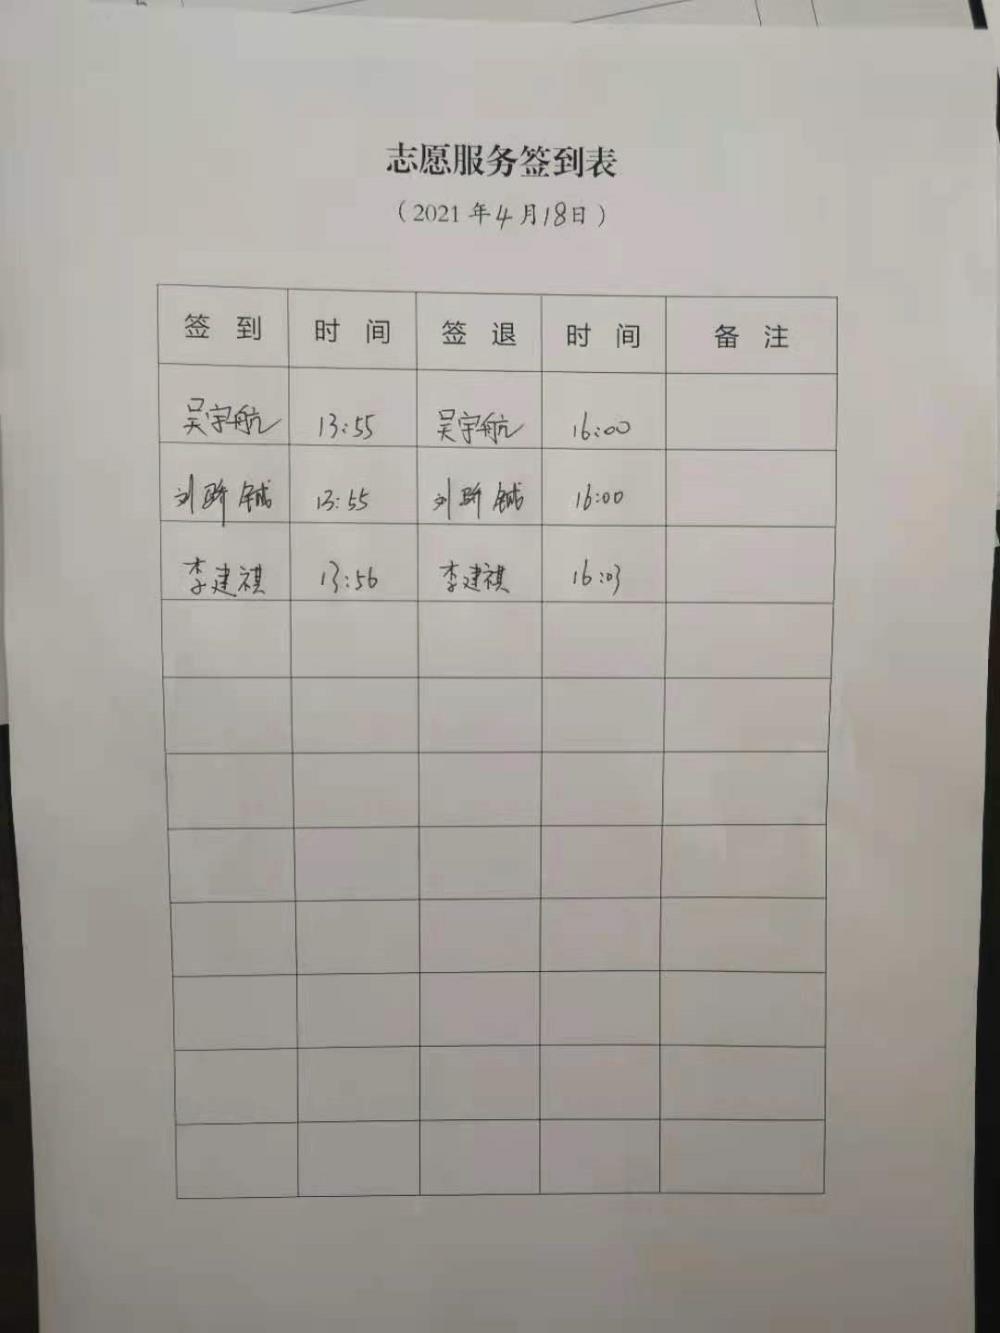 志愿服务签到表
（2021年4月18日）
签到 时间 签退 时间 备注
吴宇航 13:55 吴宇航 16:00
刘 13:55 刘 16:00
李建祺 13:56 李建祺 16:03